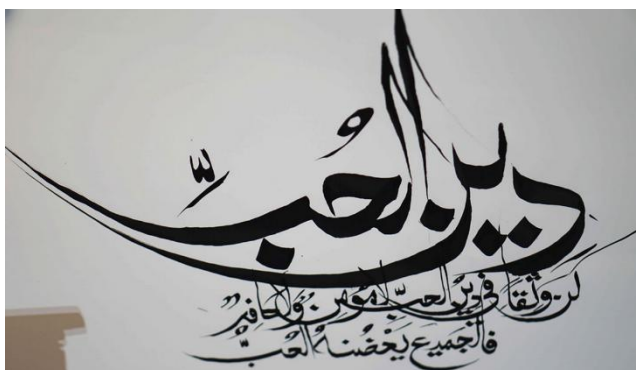 دين الحُبِّ
كن واثقًا في دين الحبِّ لا مؤمن ولا كافر
فالجميع يحضنهُ الحُبُّ